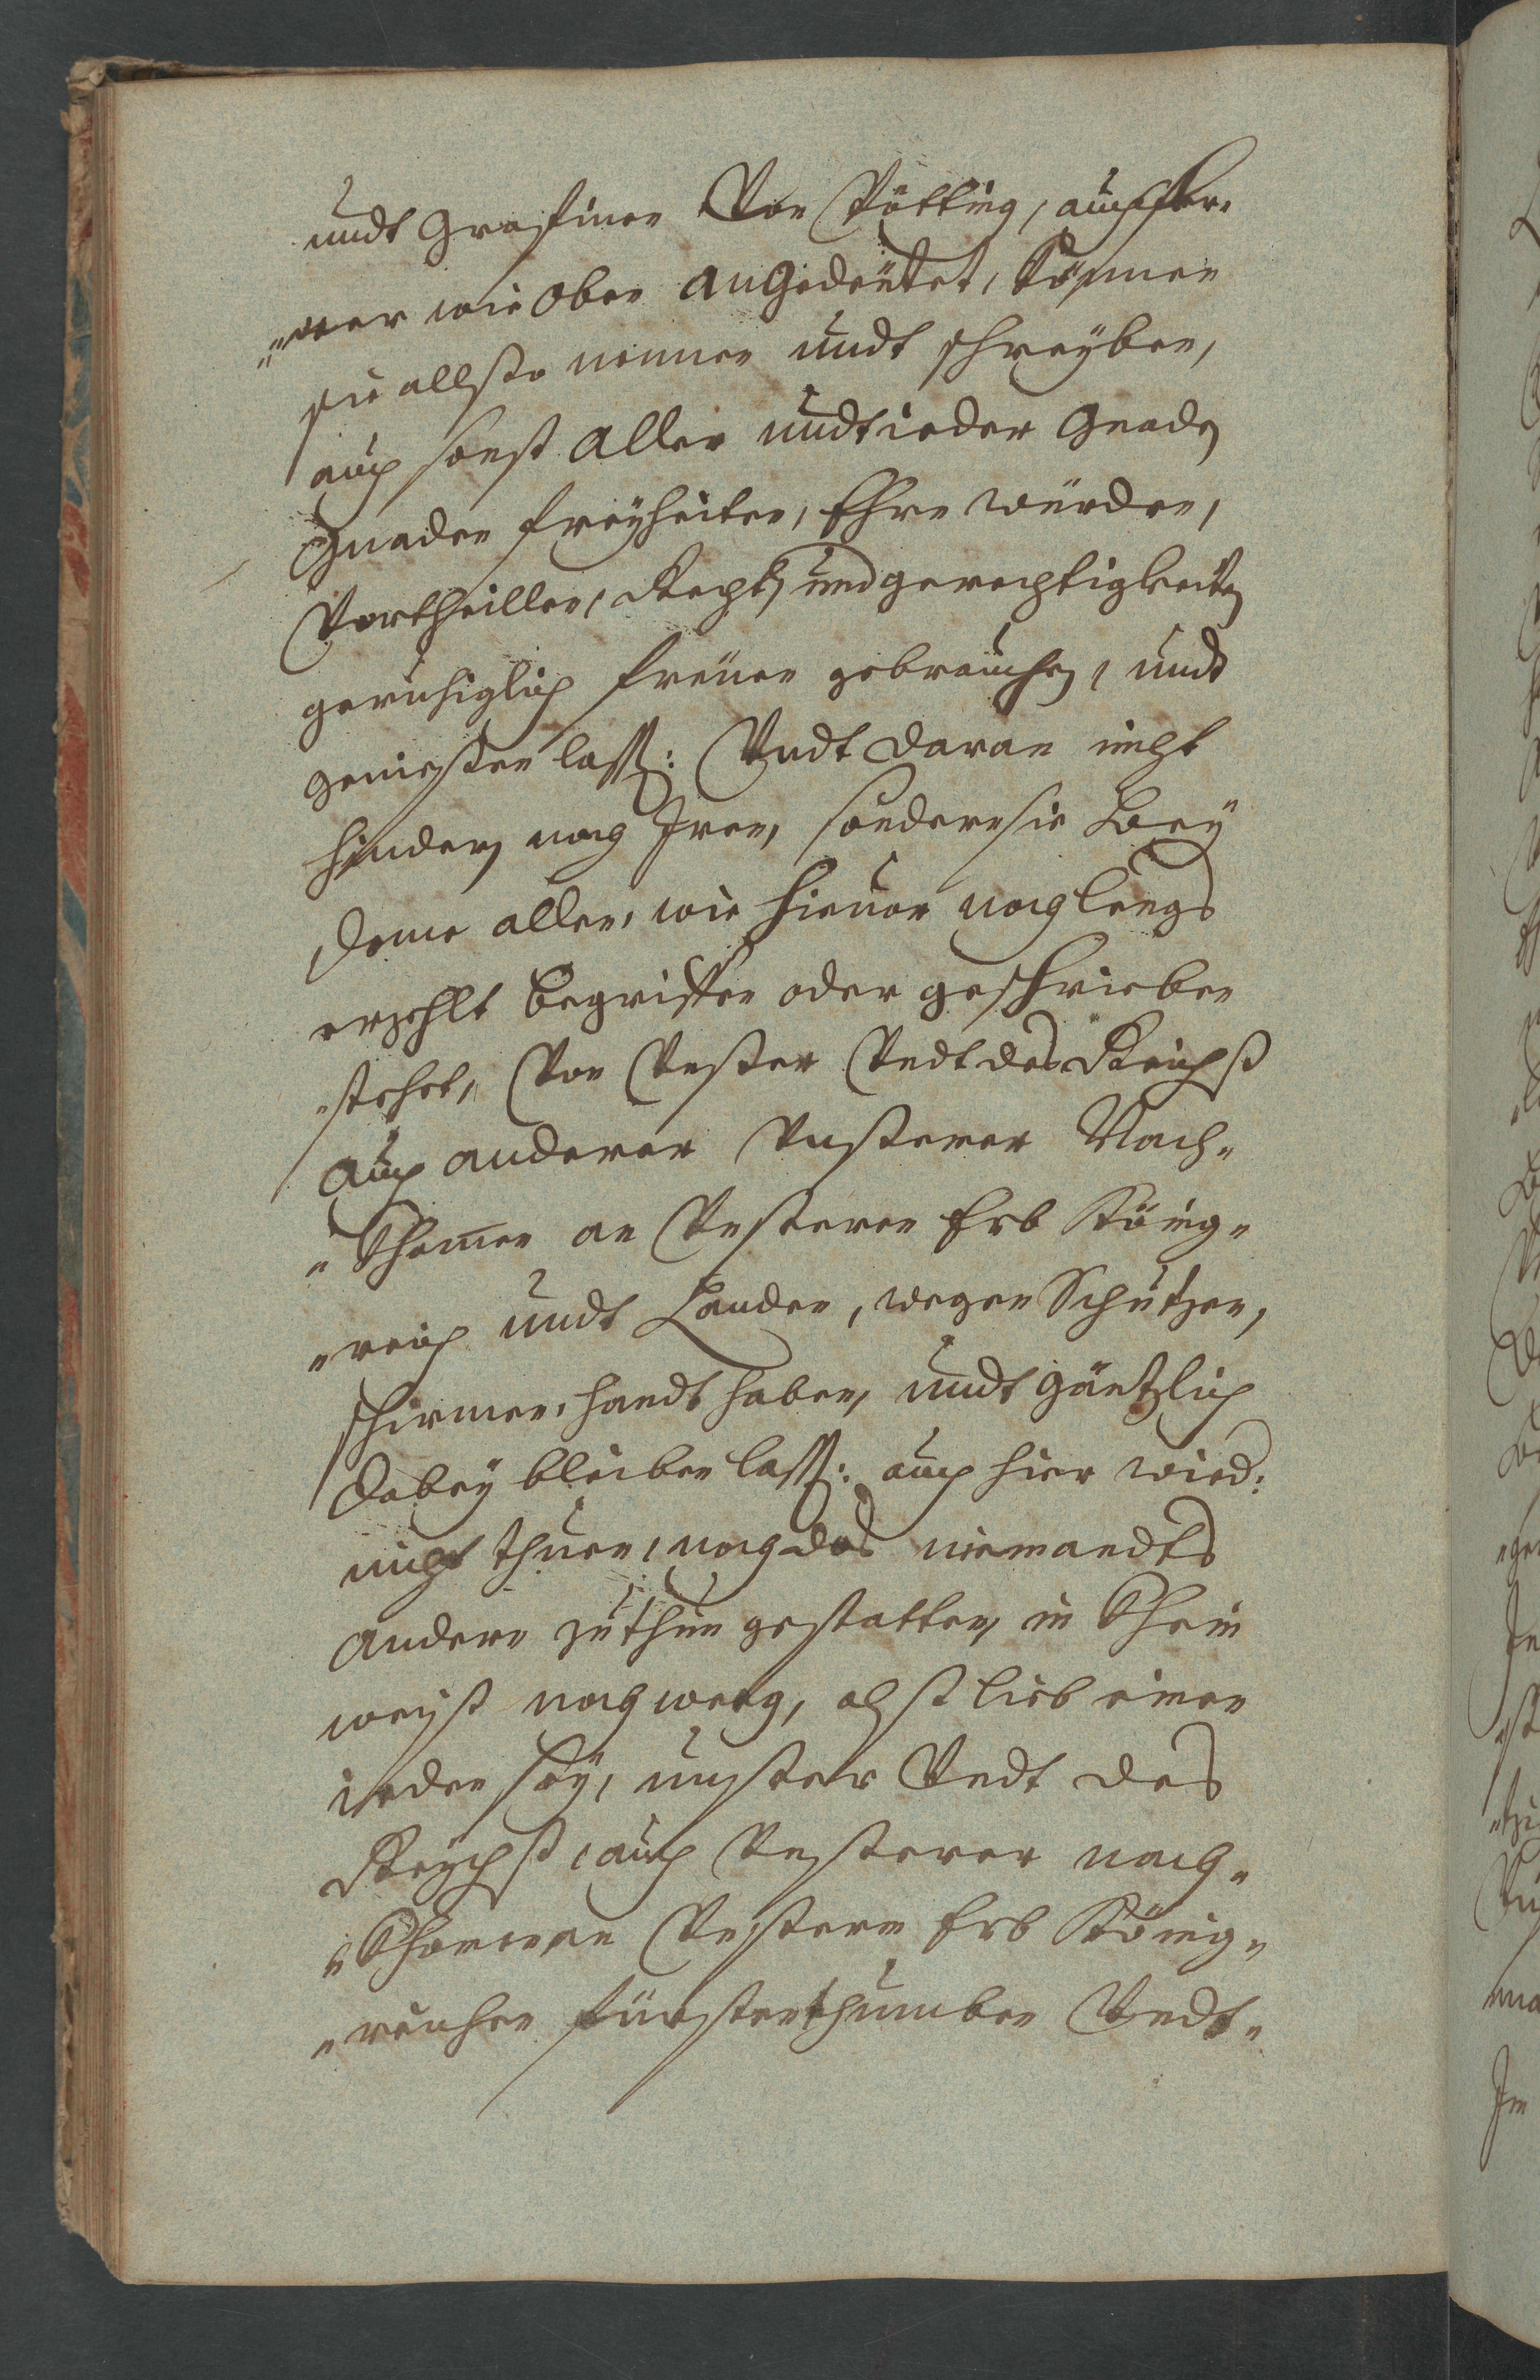 undt Grafinen Von Pötting, auch fer„
„ner wie oben angedeütet, können
sie allso nennen undt schreyben,
auch sonst aller undt ieder Gnadn
Gnaden freyheiten, Ehrn würden,
Vortheillen, Rechtn und gerechtigkeitn
geruhiglich freüen gebrauchn, undt
geniessen lassn: Undt daran nicht
hindern noch Irren, sondern sie bey
deme allen, wie hieuor nach lengs
erzehlt begriffen oder geschrieben
stehet, Von Unser Undt des Reichß
auch anderer Unserer Nach„
„Khomen an Unseren Erb König„
„reich undt Landen, wegen Schützen,
schirmen, handt haben, undt gäntzlich
dabey bleiben lassn: auch hier wied:
nicht thuen, noch das niemandts
andern zu thun gestatten, in Khein
weyß noch weeg, alß lieb einen
ieden sey, unser Undt des
Reychß, auch Unserer nach„
„Khomen an Unsern Erb König„
„reichen fürstenthumben Undt„